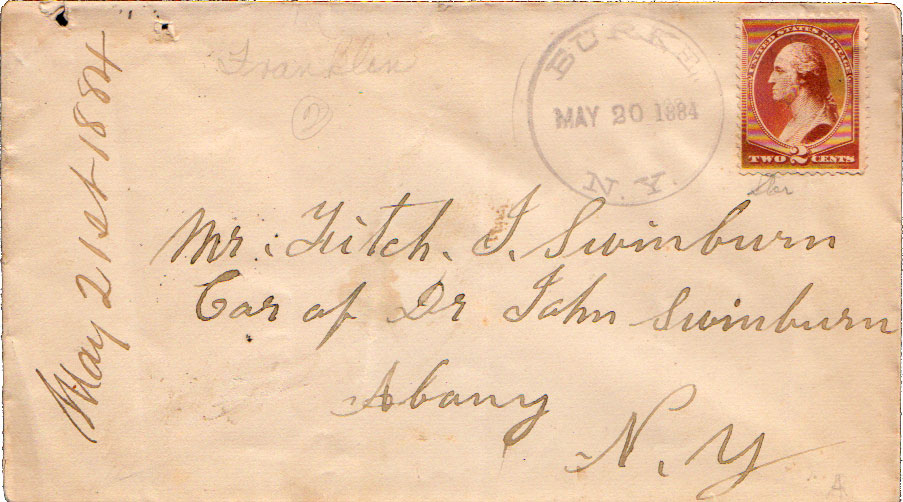 Franklin
2
BURKE
MAY 20 1884
N.Y.
UNITED STATES POSTAGE
TWO 2 CENTS
May 21st 1884
Mr. Fitch. J. Swinburn
Car of Dr John Swinburn
Abany
N. Y